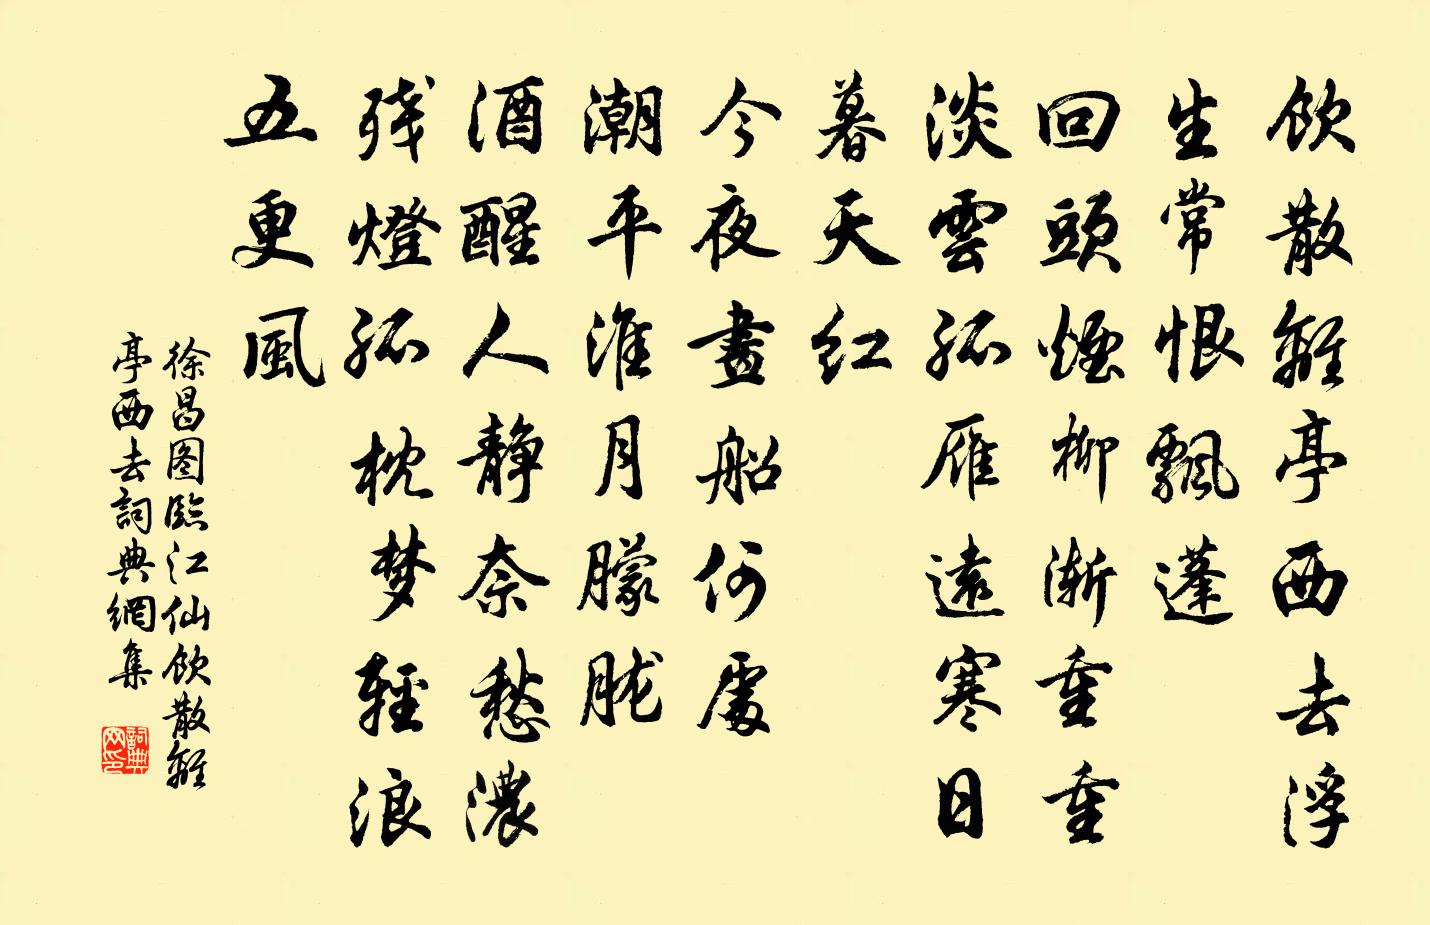 饮散離亭西去浮
生常恨飄蓬
回頭煙柳漸重重
淡雲孤雁遠寒日
暮天红
今夜畫船何處
潮平淮月朦胧
酒醒人静奈愁濃
残燈孤枕梦輕浪
五更風
徐昌图臨江仙饮散離
亭西去詞典網集
詞典
网印